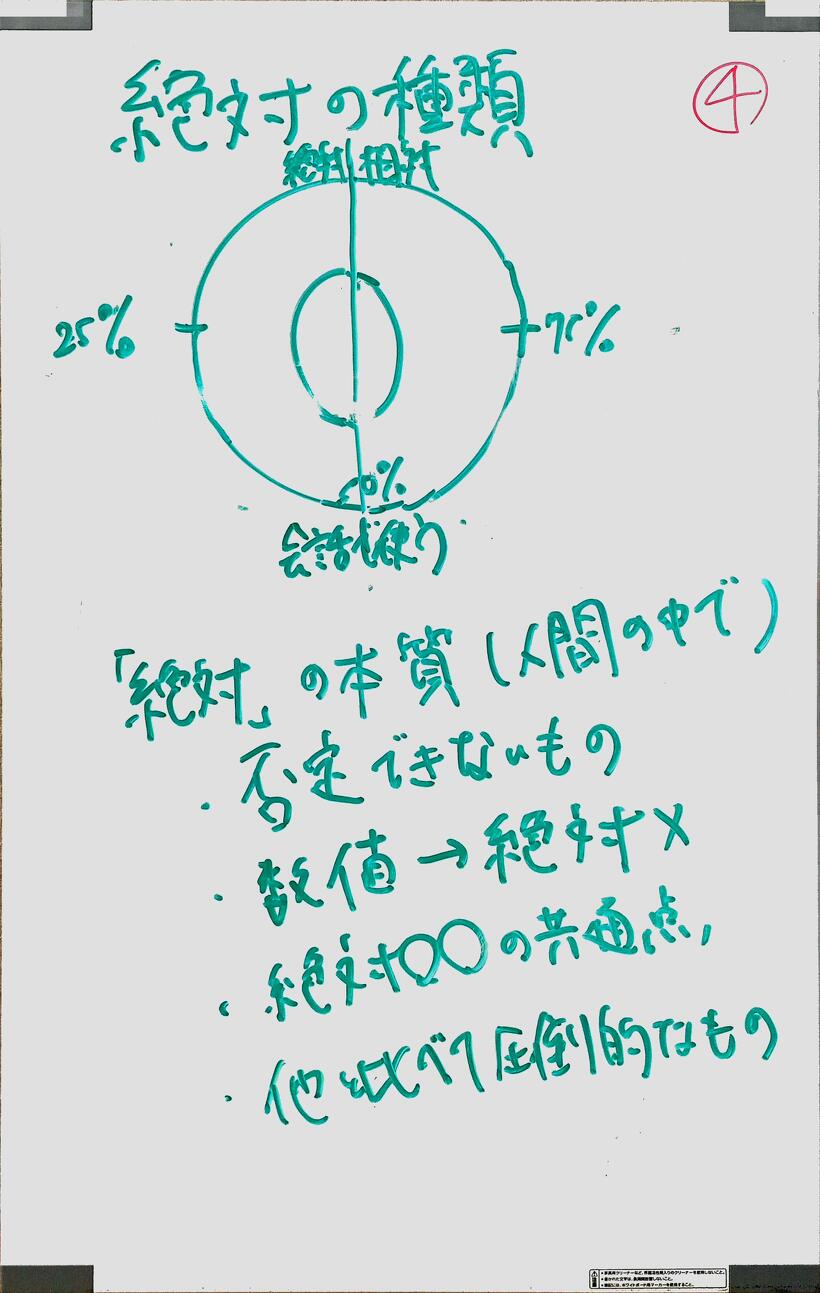 絶対の種類
④
絶対 相対
25%
75%
0%
会話で使う
「絶対」の本質(人間の中で)
・否定できないもの
・数値→絶対×
・絶対〇〇の共通点,
・他と比べて圧倒的なもの